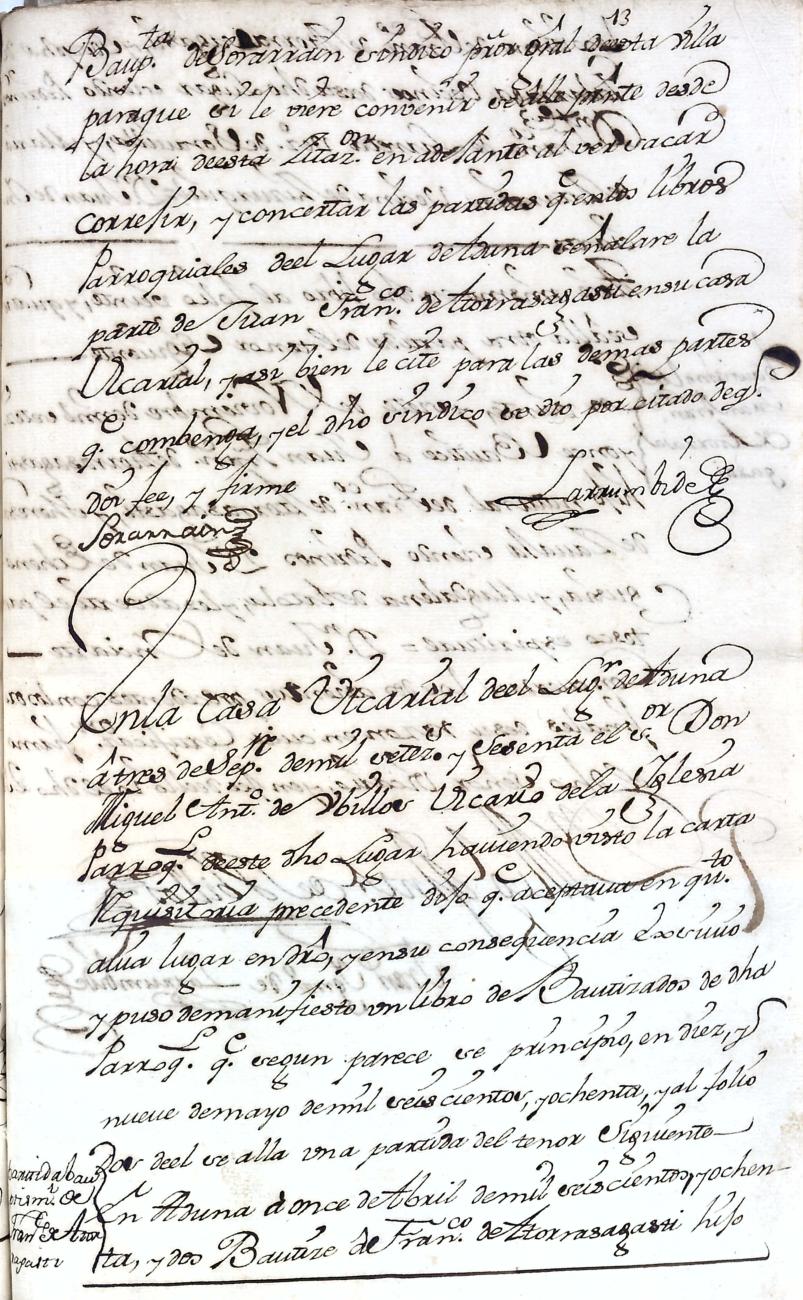 13
Baup.ta de Sorarrain sindico pror gral de esta villa
para que si le viere convenir se alle pnte desde
la hora de esta Zitaz.on en adelante al ver sacar
correjir, y concertar las partidas q.e en los libros
Parroquiales de el Lugar de Aduna señalare la
parte de Juan Fran.co de Atorrasagasti en su casa
Vicarial, y asi bien le cite para las demas partes
q.e combenga, y el dho sindico se dio por citado de q.
doi fee, y firme
Larrumbide
Sorarrain
En la Casa Vicarial de el Lug.r de Aduna
â tres de Sep.re de mil setez.s y sesenta el s.or Don
Miguel Ant.o de Vbillos Vicario de la Yglesia
Parroq.l de este dho Lugar haviendo visto la carta
Requisitoria precedente dijo q.e aceptava en q.to
avia lugar en dro, y en su consequencia Exsivio
y puso de manifiesto un libro de Bautizados de dha
Parroq.l q.e segun parece se principio, en diez, y
nueve de mayo de mil seis cientos, y ochenta, y al folio
dos de el se alla una partida del tenor Siguiente
partida bau
tism.l de
Fran.co de Ator
ragasti
En Aduna a once de Abril de mil seis cientos, y ochen-
ta, y dos Bautize a Fran.co de Atorrasagasti hijo